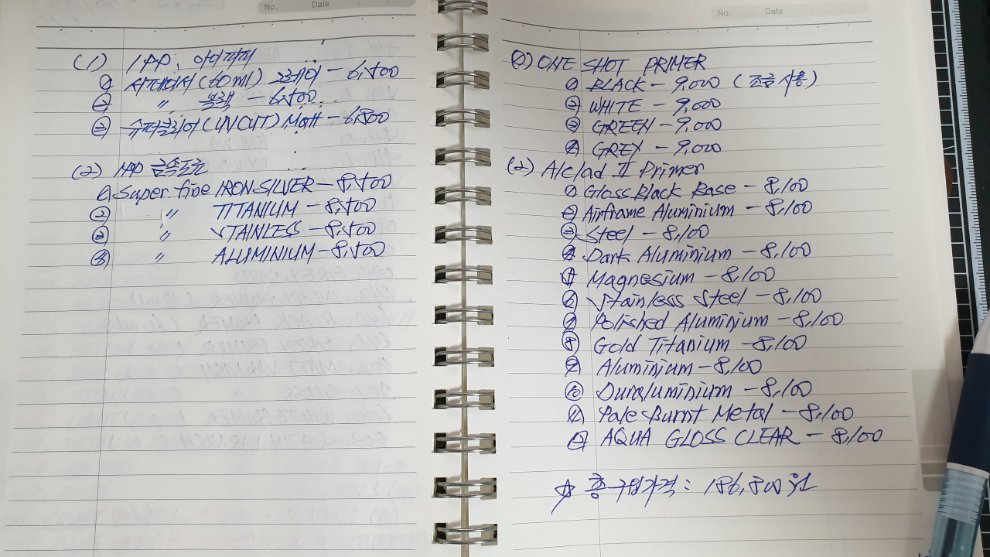 No. Date
(1) IPP : 아이피피
① 사페이서 (60ml) 그레이 - 6,500
② 〃 블랙 - 6,500
③ 슈퍼클리어 (UV CUT) Matt - 6,800
(2) IPP 금속도료
① Super fine IRON SILVER - 8,500
② 〃 TITANIUM - 8,500
③ 〃 STAINLESS - 8,500
④ 〃 ALUMINIUM - 8,500
No. Date
(1) ONE SHOT PRIMER
① BLACK - 9,000 (조금 사용)
② WHITE - 9,000
③ GREEN - 9,000
④ GREY - 9,000
(2) Alclad II Primer
① Gloss Black Base - 8,100
② Airframe Aluminium - 8,100
③ Steel - 8,100
④ Dark Aluminium - 8,100
⑤ Magnesium - 8,100
⑥ Stainless Steel - 8,100
⑦ Polished Aluminium - 8,100
⑧ Gold Titanium - 8,100
⑨ Aluminium - 8,100
⑩ Duraluminium - 8,100
⑪ Pale Burnt Metal - 8,100
⑫ AQUA GLOSS CLEAR - 8,100
☆ 총 구입가격 : 186,800원